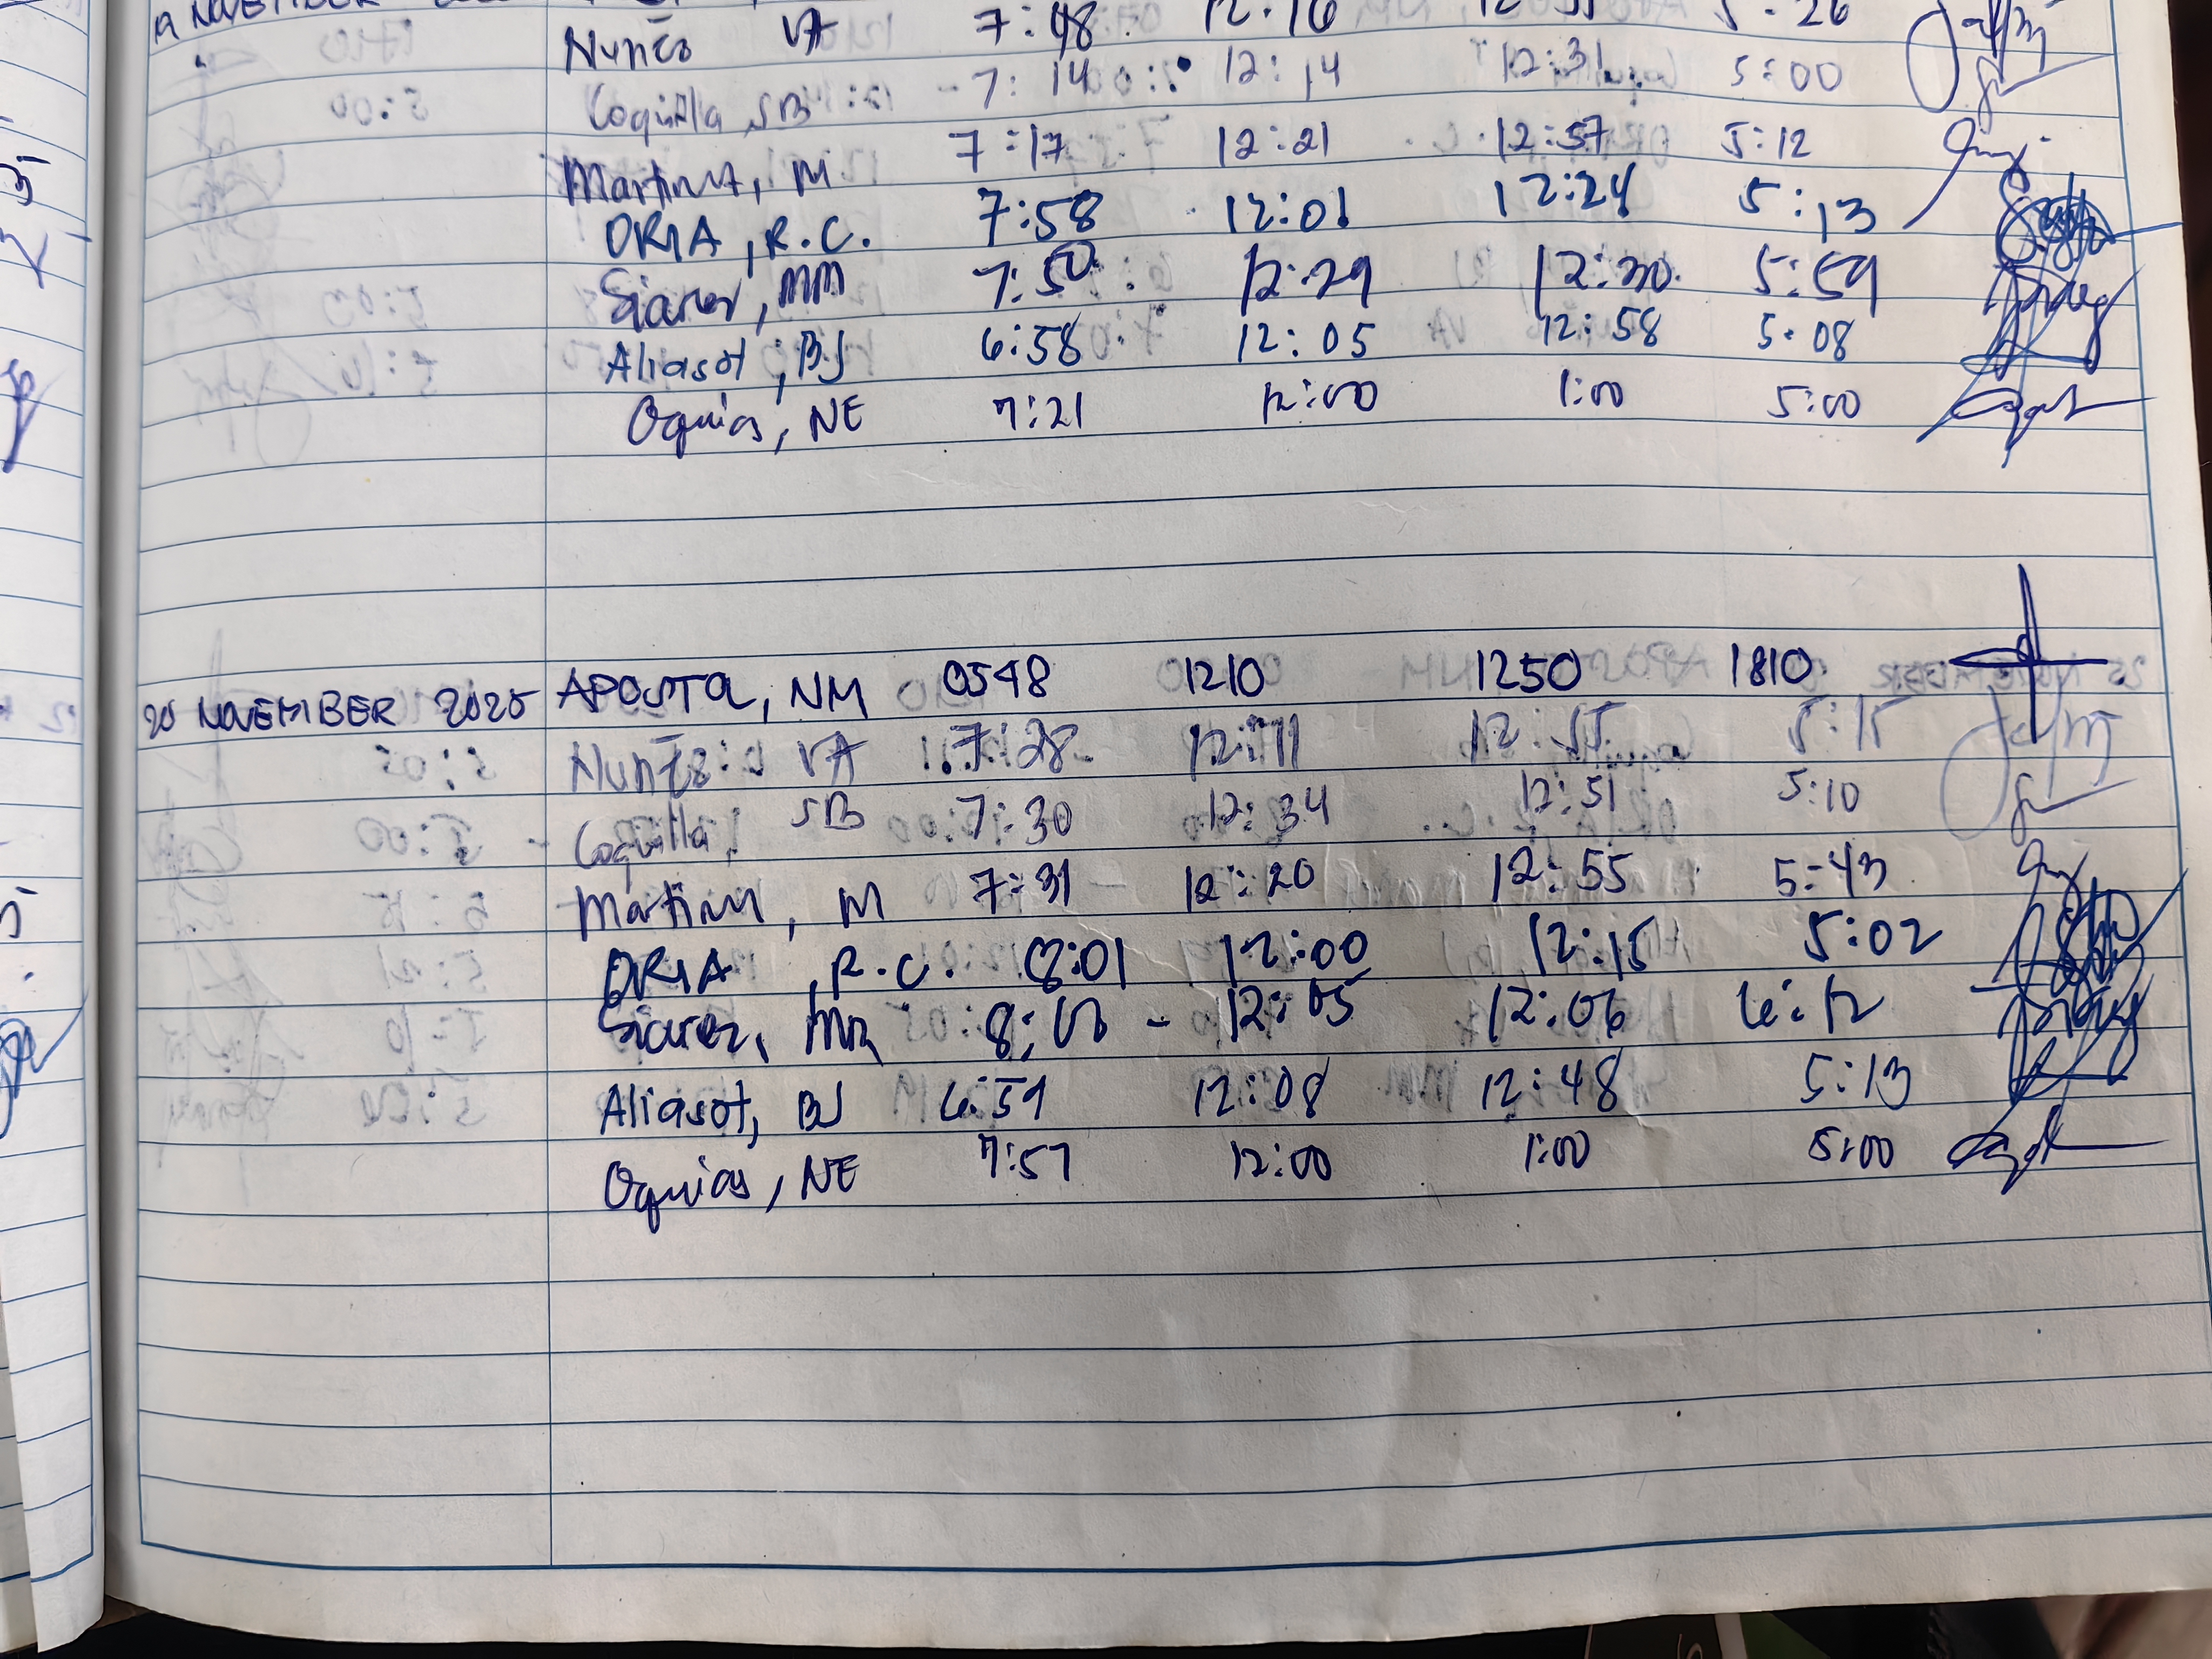 19 NOVEMBER
Nuñes VA 7:48 12:16 5:26
" Coquilla, SB 7:14 12:14 12:31 5:00
Martinez, M 7:17 12:21 12:57 5:12
ORIA, R.C. 7:58 12:01 12:24 5:13
Siarez, MM 7:50 12:29 12:30 5:59
Aliasot, BJ 6:58 12:05 12:58 5:08
Oquias, NE 7:21 12:00 1:00 5:00
20 NOVEMBER 2025 APOSTA, NM 0548 1210 1250 1810
Nuñes VA 7:28 12:11 12:55 5:15
Coquilla, SB 7:30 12:34 12:51 5:10
Martinez, M 7:31 12:20 12:55 5:43
ORIA, R.C. 8:01 12:00 12:15 5:02
Siarez, MM 8:00 - 12:05 12:06 6:12
Aliasot, BJ 6:59 12:08 12:48 5:13
Oquias, NE 7:57 12:00 1:00 5:00